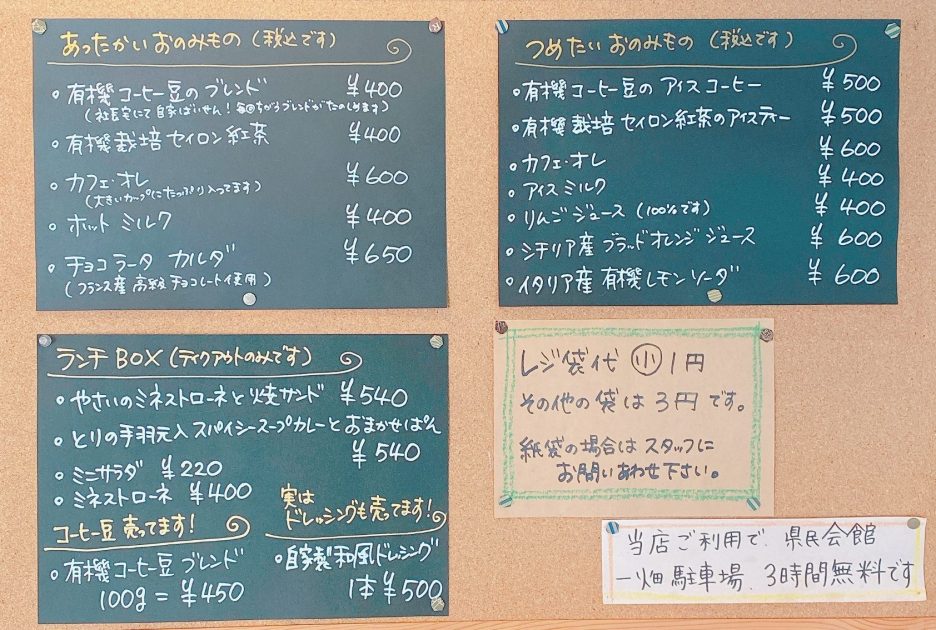 あったかいおのみもの（税込です）
○有機コーヒー豆のブレンド ¥400
（社長宅にて自家ばいせん！毎回ちがうブレンドがたのしめます）
○有機栽培セイロン紅茶 ¥400
○カフェ・オレ ¥600
（大きいカップにたっぷり入ってます）
○ホットミルク ¥400
○チョコラータカルダ ¥650
（フランス産高級チョコレート使用）
つめたいおのみもの（税込です）
○有機コーヒー豆のアイスコーヒー ¥500
○有機栽培セイロン紅茶のアイスティー ¥500
○カフェ・オレ ¥600
○アイスミルク ¥400
○りんごジュース（100%です） ¥400
○シチリア産ブラッドオレンジジュース ¥600
○イタリア産有機レモンソーダ ¥600
ランチBOX（テイクアウトのみです）
○やさいのミネストローネと焼サンド ¥540
○とりの手羽元入スパイシースープカレーとおまかせぱん
¥540
○ミニサラダ ¥220
○ミネストローネ ¥400
コーヒー豆売ってます！
○有機コーヒー豆ブレンド
100g = ¥450
実は
ドレッシングも売ってます！
○自家製和風ドレッシング
1本¥500
レジ袋代 小 1円
その他の袋は3円です。
紙袋の場合はスタッフに
お問いあわせ下さい。
当店ご利用で、県民会館
一畑駐車場、3時間無料です